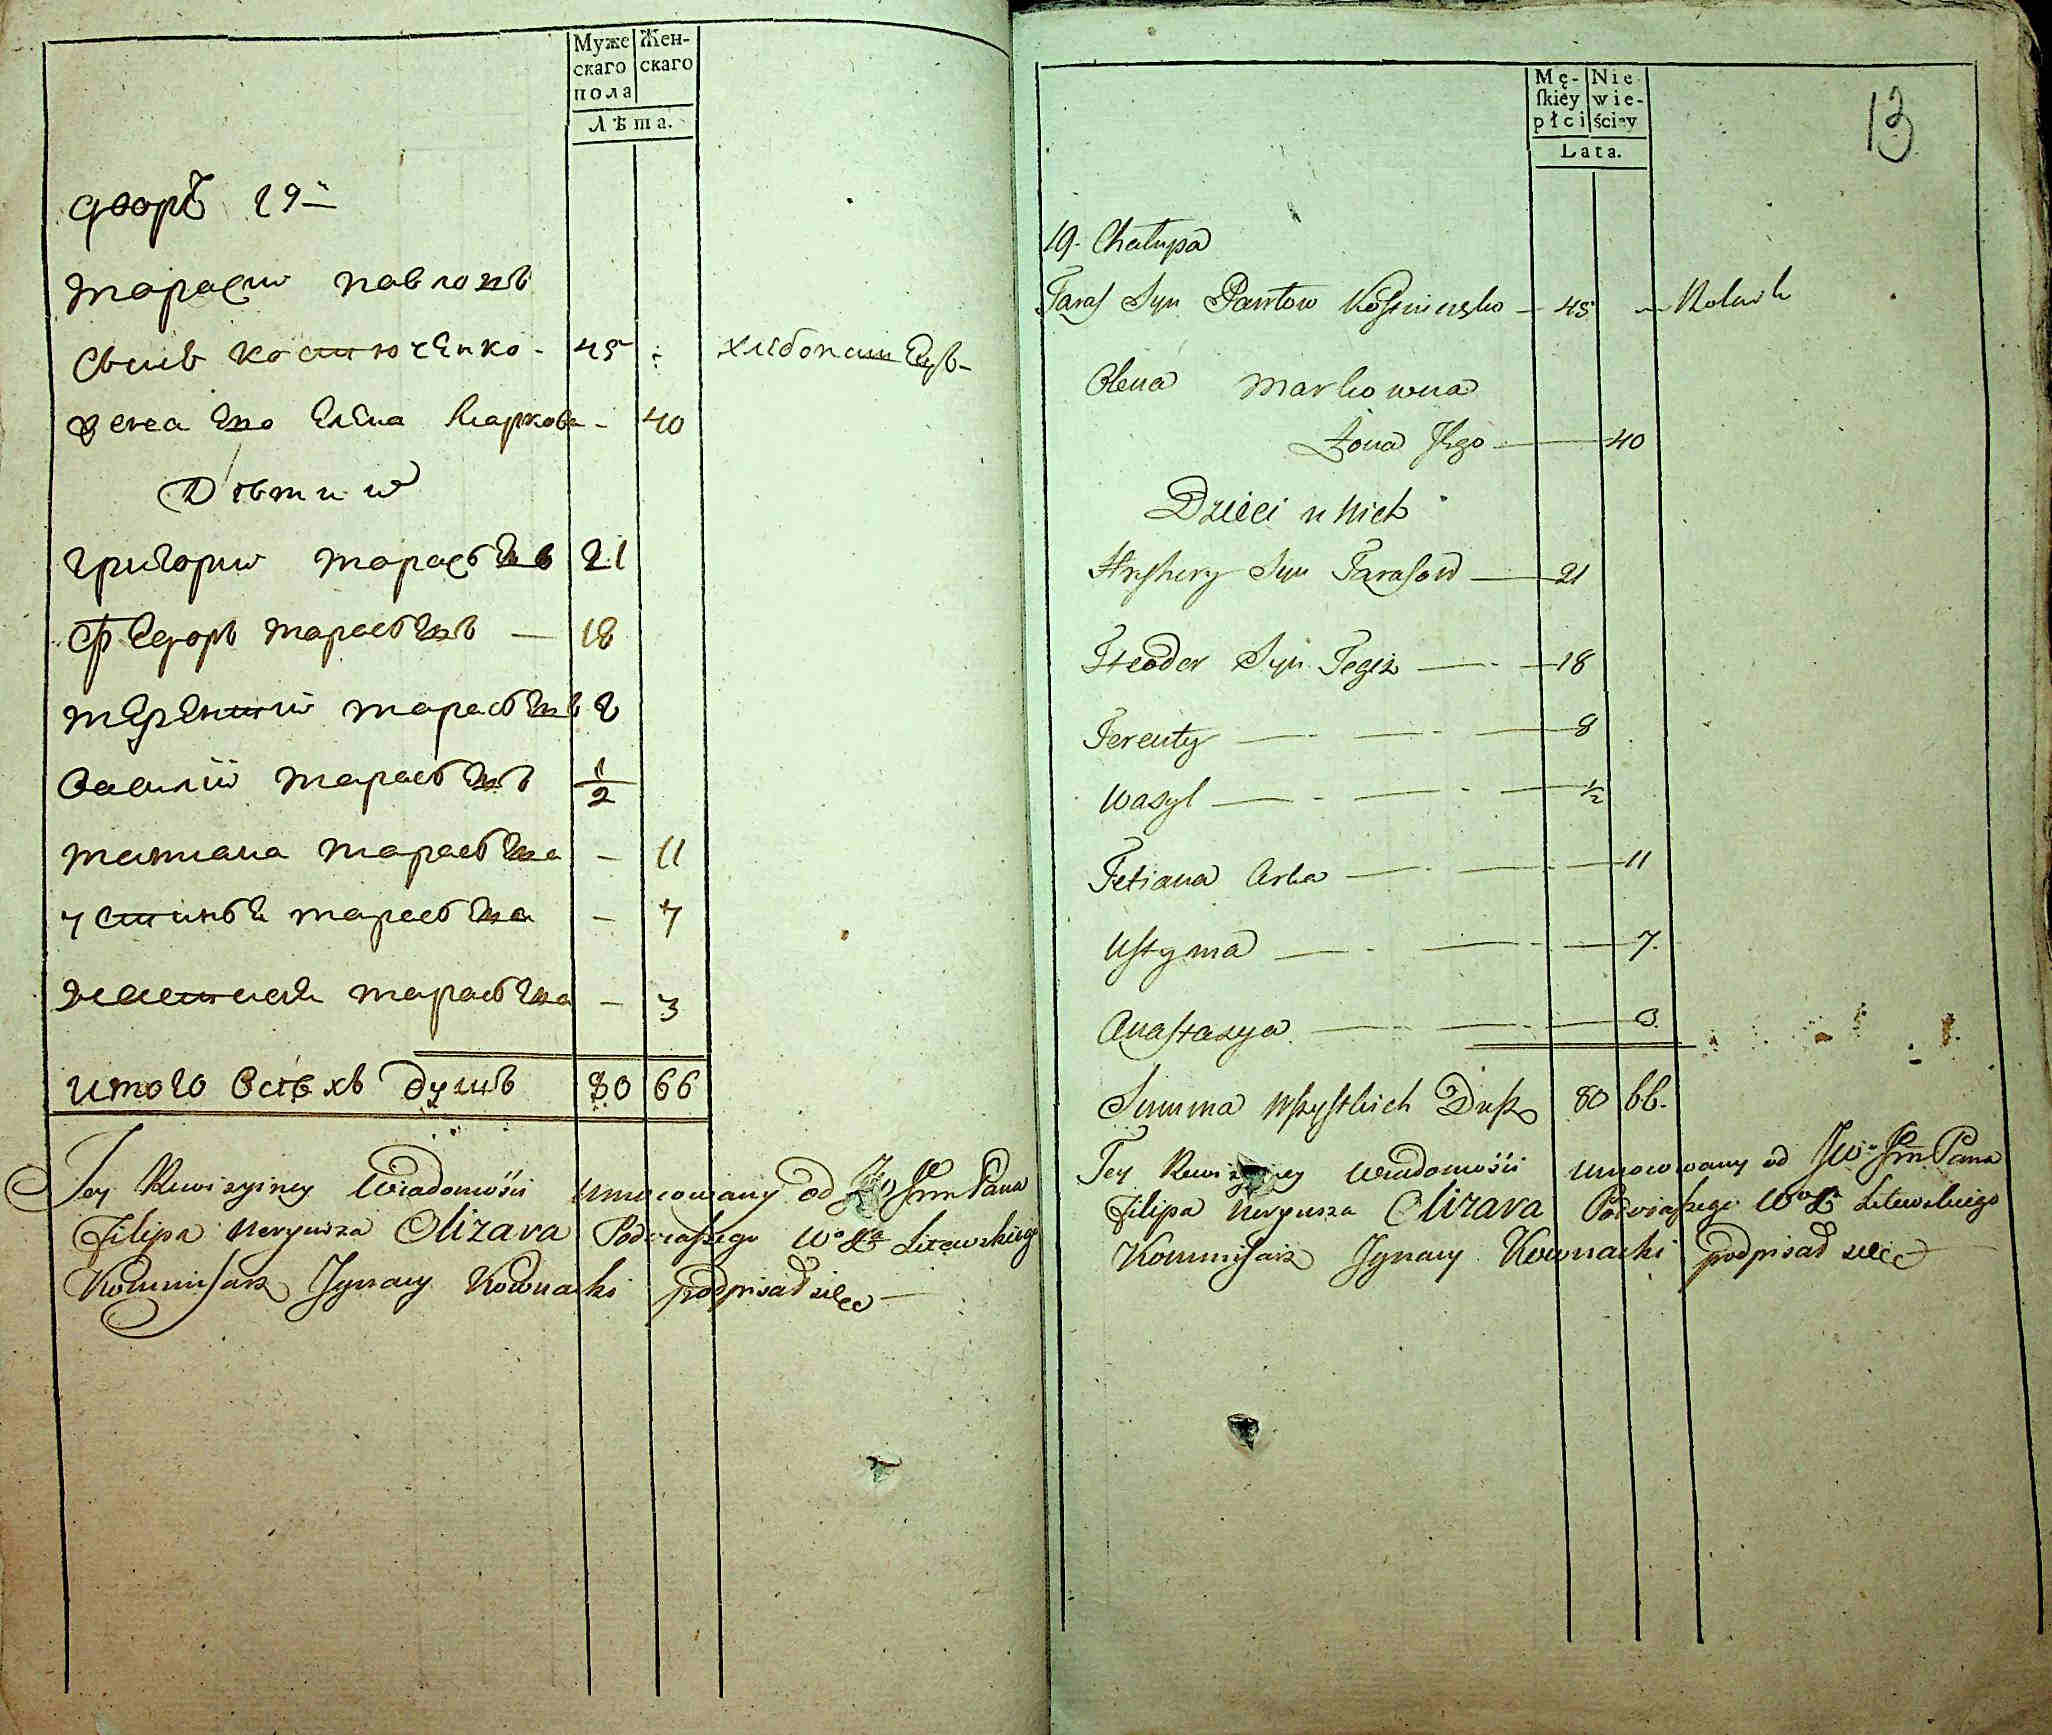 Муже
скаго
пола
Жен-
скаго
Лѣта.
дворъ 19й
Тарасий павловъ
сынъ костюченко - 45 хлебопашецъ -
жена его елена Маркова - 40
Дѣти и
григорий тарасовъ 21
Федоръ тарасовъ — 18
терентий тарасовъ 8
василий тарасовъ 1/2
татиана тарасова — 11
устиния тарасова — 7
настасия тарасова — 3
итого всѣхъ душъ 80 66
Tey Rewizyiney Wiadomości umocowany od JW Jmm Pana
Filipa Neryusza Olizara Podczaszego Wo Xa Litewskiego
Kommissarz Jgnacy Kownacki podpisał sieę —
13
Mę-
ſkiey
płci
Nie
wie-
ściey
Lata.
19. Chałupa
Taras Syn Pawłow Kostiuczko — 45 — Rolnik
Olena Markowna
Żona Jego — 40
Dzieci u Nich
Hryhory Syn Tarasow — 21
Fteodor Syn Tegiż — 18
Terenty — 8
Wasyl — 1/2
Tetiana Crka — 11
Ustyma — 7.
Anastazya — 3
Summa Wszystkich Dusz 80 66.
Tey Rewizyiney Wiadomości umocowany od JW Jmm Pana
Filipa Neryusza Olizara Podczaszego Wo Xa Litewskiego
Kommissarz Jgnacy Kownacki podpisał sieę —